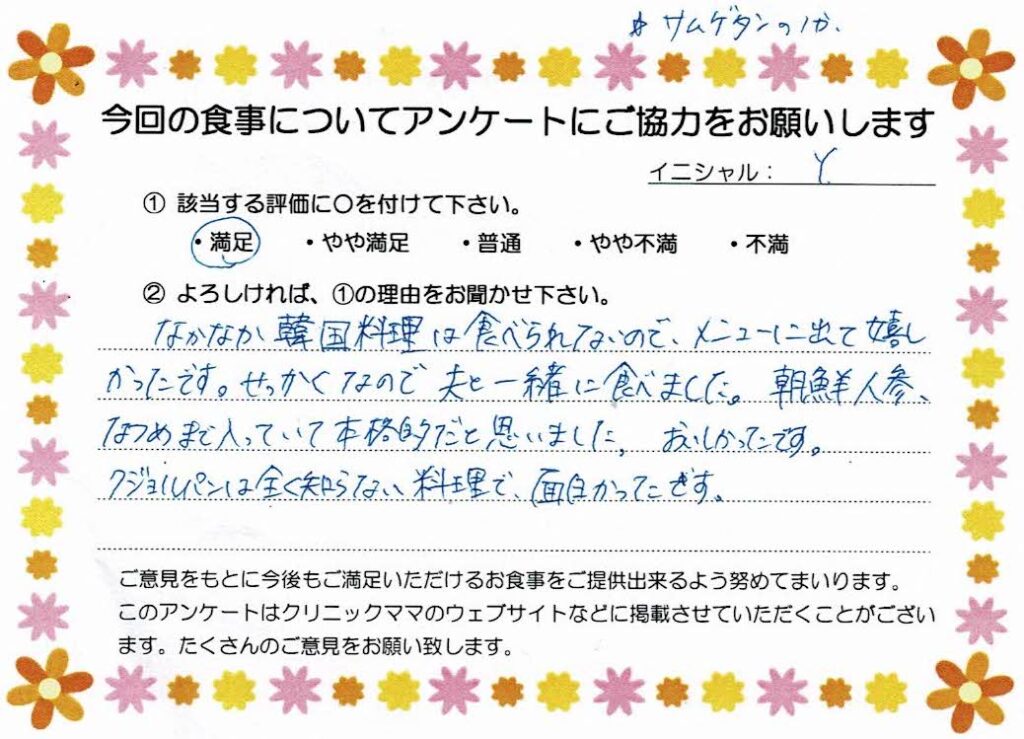 サムゲタンの1か.
今回の食事についてアンケートにご協力をお願いします
イニシャル： Y
① 該当する評価に○を付けて下さい。
・満足 ・やや満足 ・普通 ・やや不満 ・不満
② よろしければ、①の理由をお聞かせ下さい。
なかなか韓国料理は食べられないので、メニューに出て嬉し
かったです。せっかくなので夫と一緒に食べました。朝鮮人参、
なつめまで入っていて本格的だと思いました。おいしかったです。
クジョルパンは全く知らない料理で、面白かったです。
ご意見をもとに今後もご満足いただけるお食事をご提供出来るよう努めてまいります。
このアンケートはクリニックママのウェブサイトなどに掲載させていただくことがござい
ます。たくさんのご意見をお願い致します。